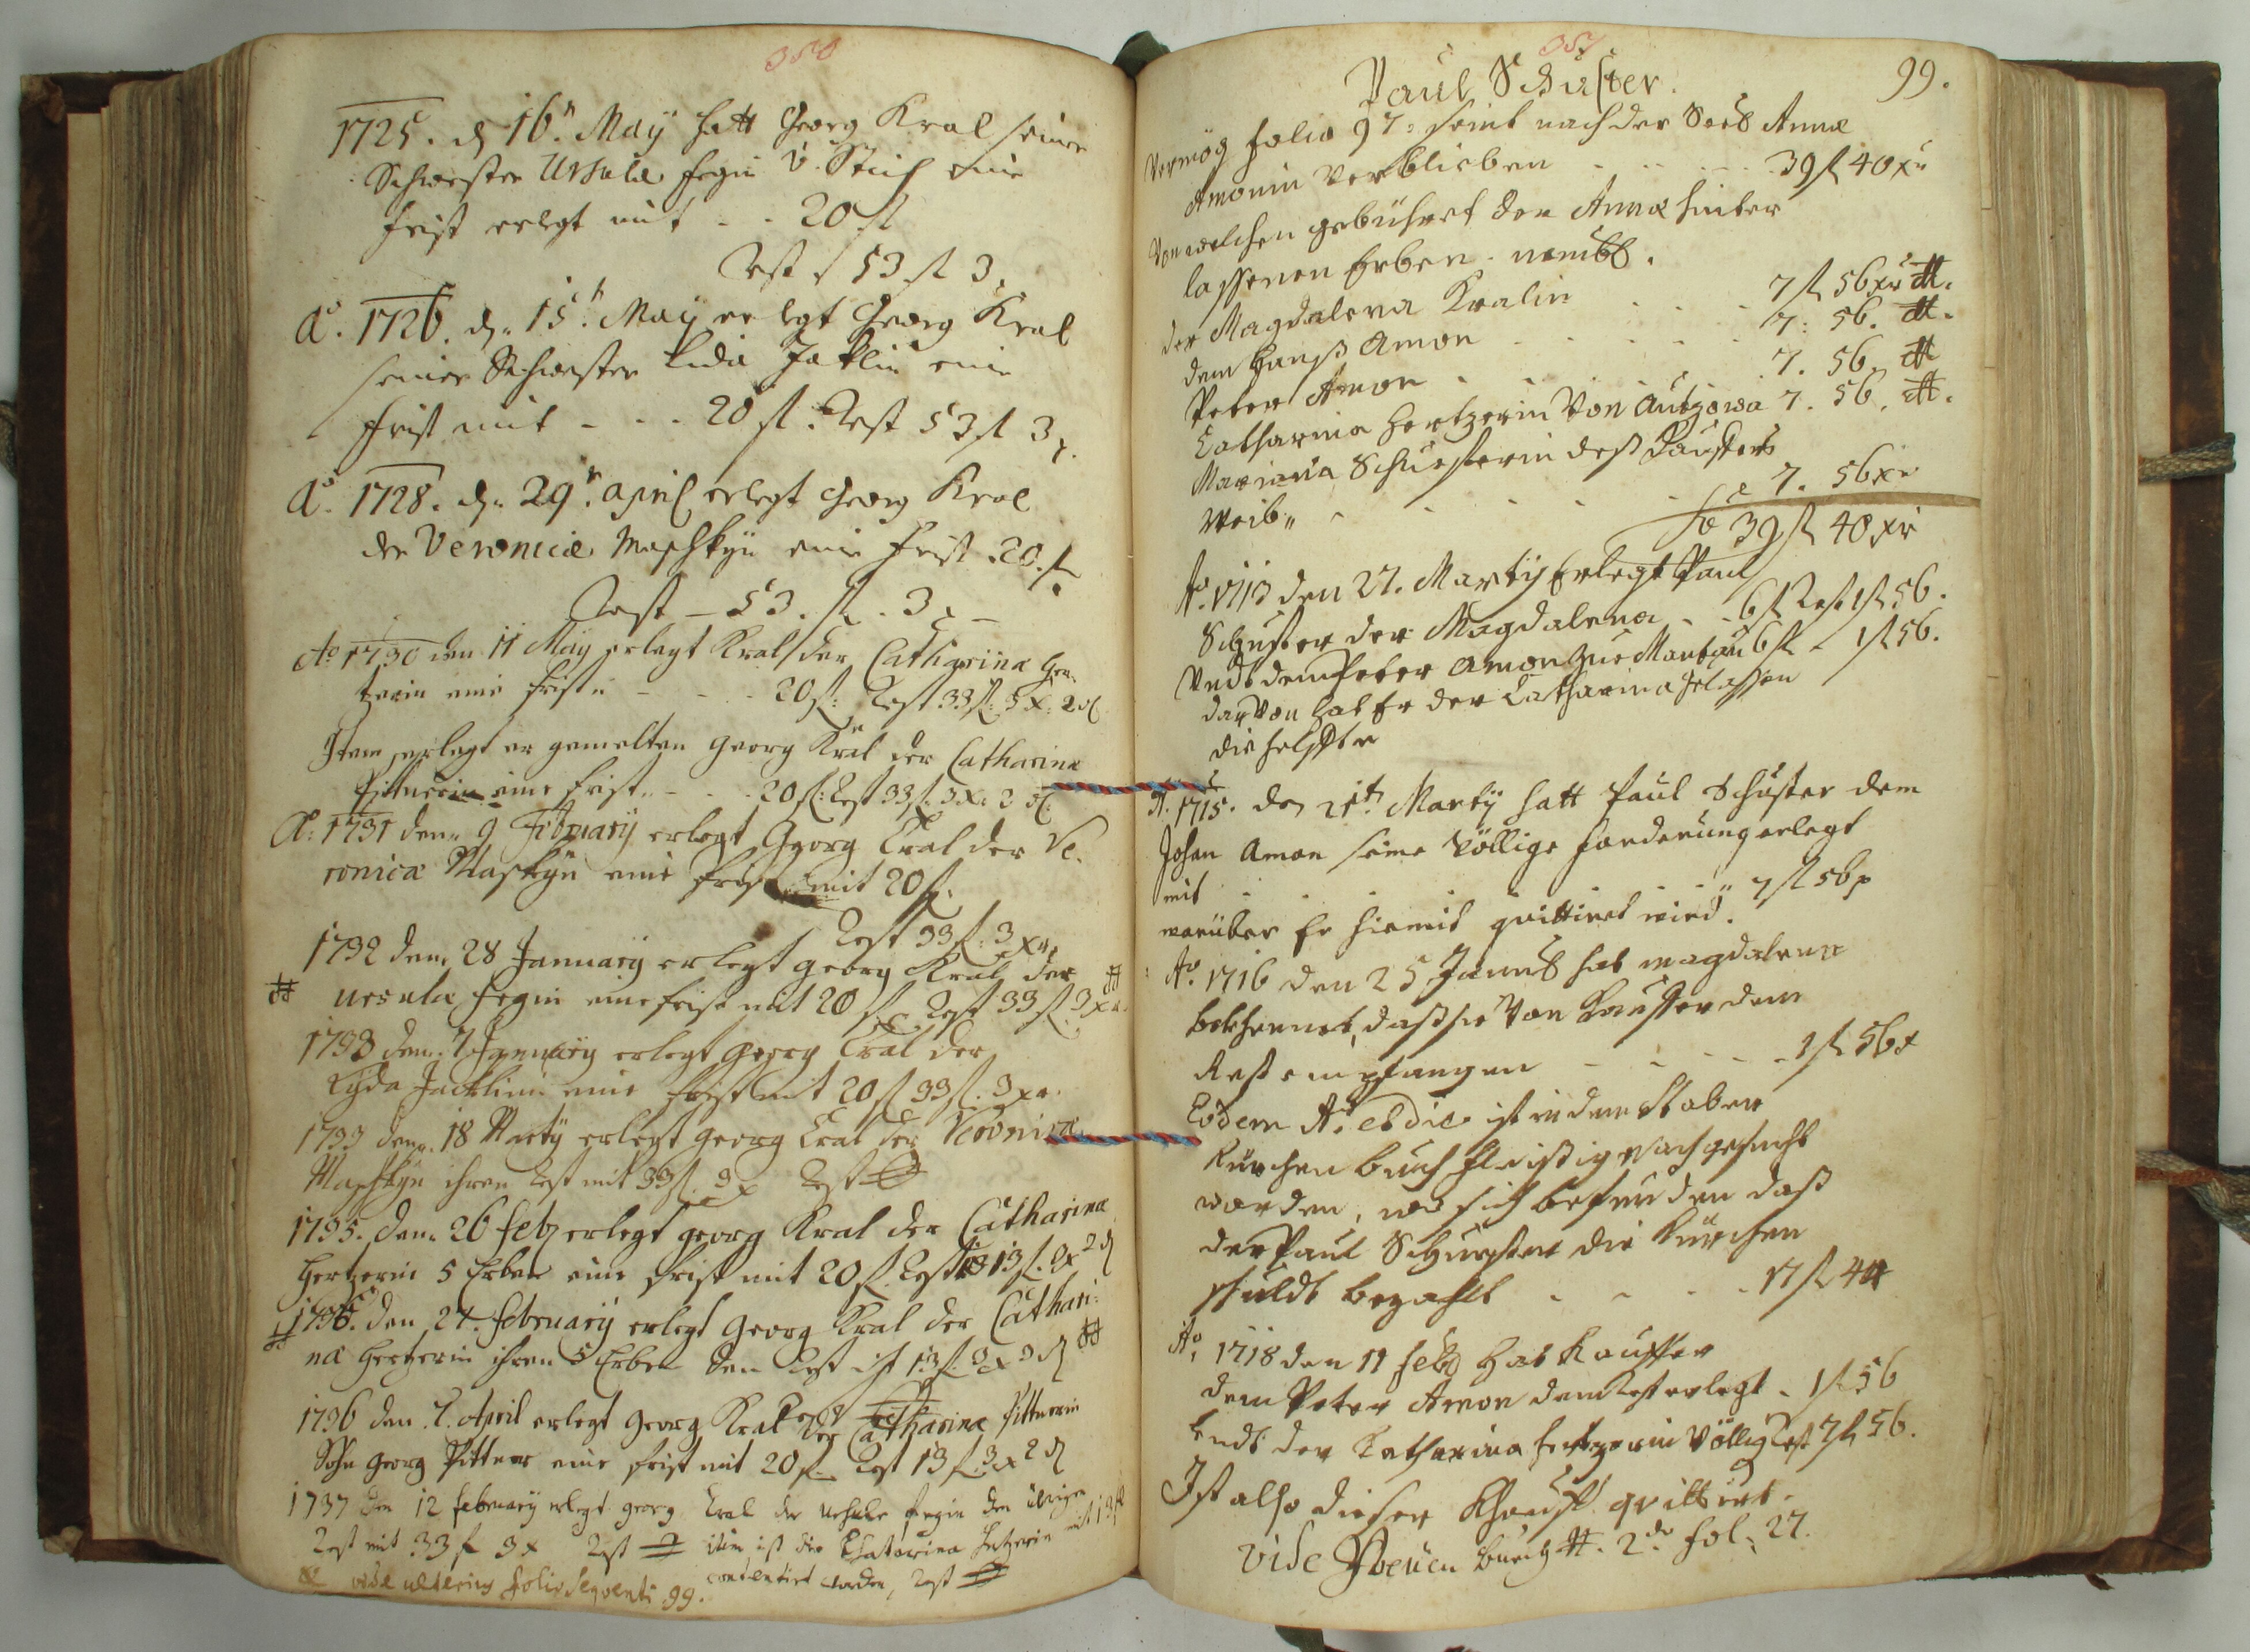 350
1725. dn 16n May hatt Georg Kral seiner
Schwester Ursula Fegin v. Steich eine
frist erlegt mit - - 20 fl
Rest 53 fl 3
Ao. 1726. dn. 15n. May erlegt Georg Kral
seiner Schwester Lida Jaklin eine
frist mit - - - 20 fl. Rest 53 fl 3x.
Ao. 1728. dn. 29n. April erlegt Georg Kral
der Veronicæ Maschkyn eine frist . 20. fl
Rest - 53. fl. 3x -
Ao 1730 den 11 May erlegt Kral der Catharinæ Her-
tzerin eine frist - - - 20 fl: Rest 33 fl: 3x: 2 d
Item erlegt er gemelten Georg Kral der Catharina
Pittnerin eine frist - - - 20 fl: Rest 33 fl. 3x: 2 d
A: 1731 den 9 February erlegt Georg Kral der Ve-
ronicæ Maschkyn eine frist mit 20 fl.
Rest 33 fl. 3 xr
1732 den 28 January erlegt Georg Kral der
Ursula Fegin eine frist mit 20 fl Rest 33 fl 3x
1733 den 7 January erlegt Georg Kral der
Lyda Jacklin eine frist mit 20 fl 33 fl. 3xr.
1733 den 18 Marty erlegt Georg Kral der Veronica
Maschkyn ihren Rest mit 33 fl. 3x Rest
1735. den 26 Feb erlegt Georg Kral der Catharina
Hertzerin 5 Erben eine frist mit 20 fl. Rest 13 fl. 3x 2 d
1736. den 27. February erlegt Georg Kral der Cathari-
na Hertzerin ihren 5 Erben den Rest ist 13 fl. 3x 3 d
1736 den 7. April erlegt Georg Kral der Catharina Pittnerin
Sohn Georg Pittner eine frist mit 20 fl. Rest 13 fl. 3x 2 d
1737 den 12 February erlegt Georg Kral der Ursula Fegin den übrigen
Rest mit 33 f 3x Rest item ist die Chatarina Hertzerin mit 13 fl
contentirt worden, Rest
vide ulterius folio sequenti 99.
357
99.
Paul Schuster.
Vermög folio 97: seint nach der Seel Annæ
Amonin Verblieben - - - 39 fl 40 xr
Von welchen gebühret der Annæ hinter
lassenen Erben. nembl.
der Magdalena Kralin - - - 7 fl 56 xr
dem Hanß Amon - - - - 7: 56.
Peter Amon - - - 7. 56.
Catharina Hertzerin Von Autzowa 7. 56.
Mariana Schusterin deß Kauffers
Weib - - - - - 7. 56 xr
Sa 39 fl 40 xr
Ao. 1713 den 27. Martij Erlegt Paul
Schuster der Magdalena - - 6 fl Rest 1 fl 56.
Undt dem Peter Amon zue 6 fl - 1 fl 56.
darvon hat Er der Catharina gelassen
die helffte
A. 1715. den 21t. Martij hatt Paul Schuster dem
Johan Amon seine Völlige forderung erlegt
mit - - - - 7 fl 56
warüber Er hiemit quittiret wird.
Ao. 1716 den 25 Januar hat Magdalena
bekhennet, daß sie Von Kauffer den
Rest empfangen - - - - 1 fl 56 x
Eodem Ao. et die ist in dem
Kürchen buch fleissig nachgesucht
worden, undt sich befunden daß
der Paul Schuster die Kürchen
schuldt bezahlt - - - - 17 fl 44
Ao. 1718 den 11 Feb hat Kauffer
dem Peter Amon den Rest erlegt - 1 fl 56
Undt der Catharina Hertzerin Völlig Rest 7 fl 56.
Ist also dieser Khauff quittirt.
vide Neuen buch 2do fol: 27.